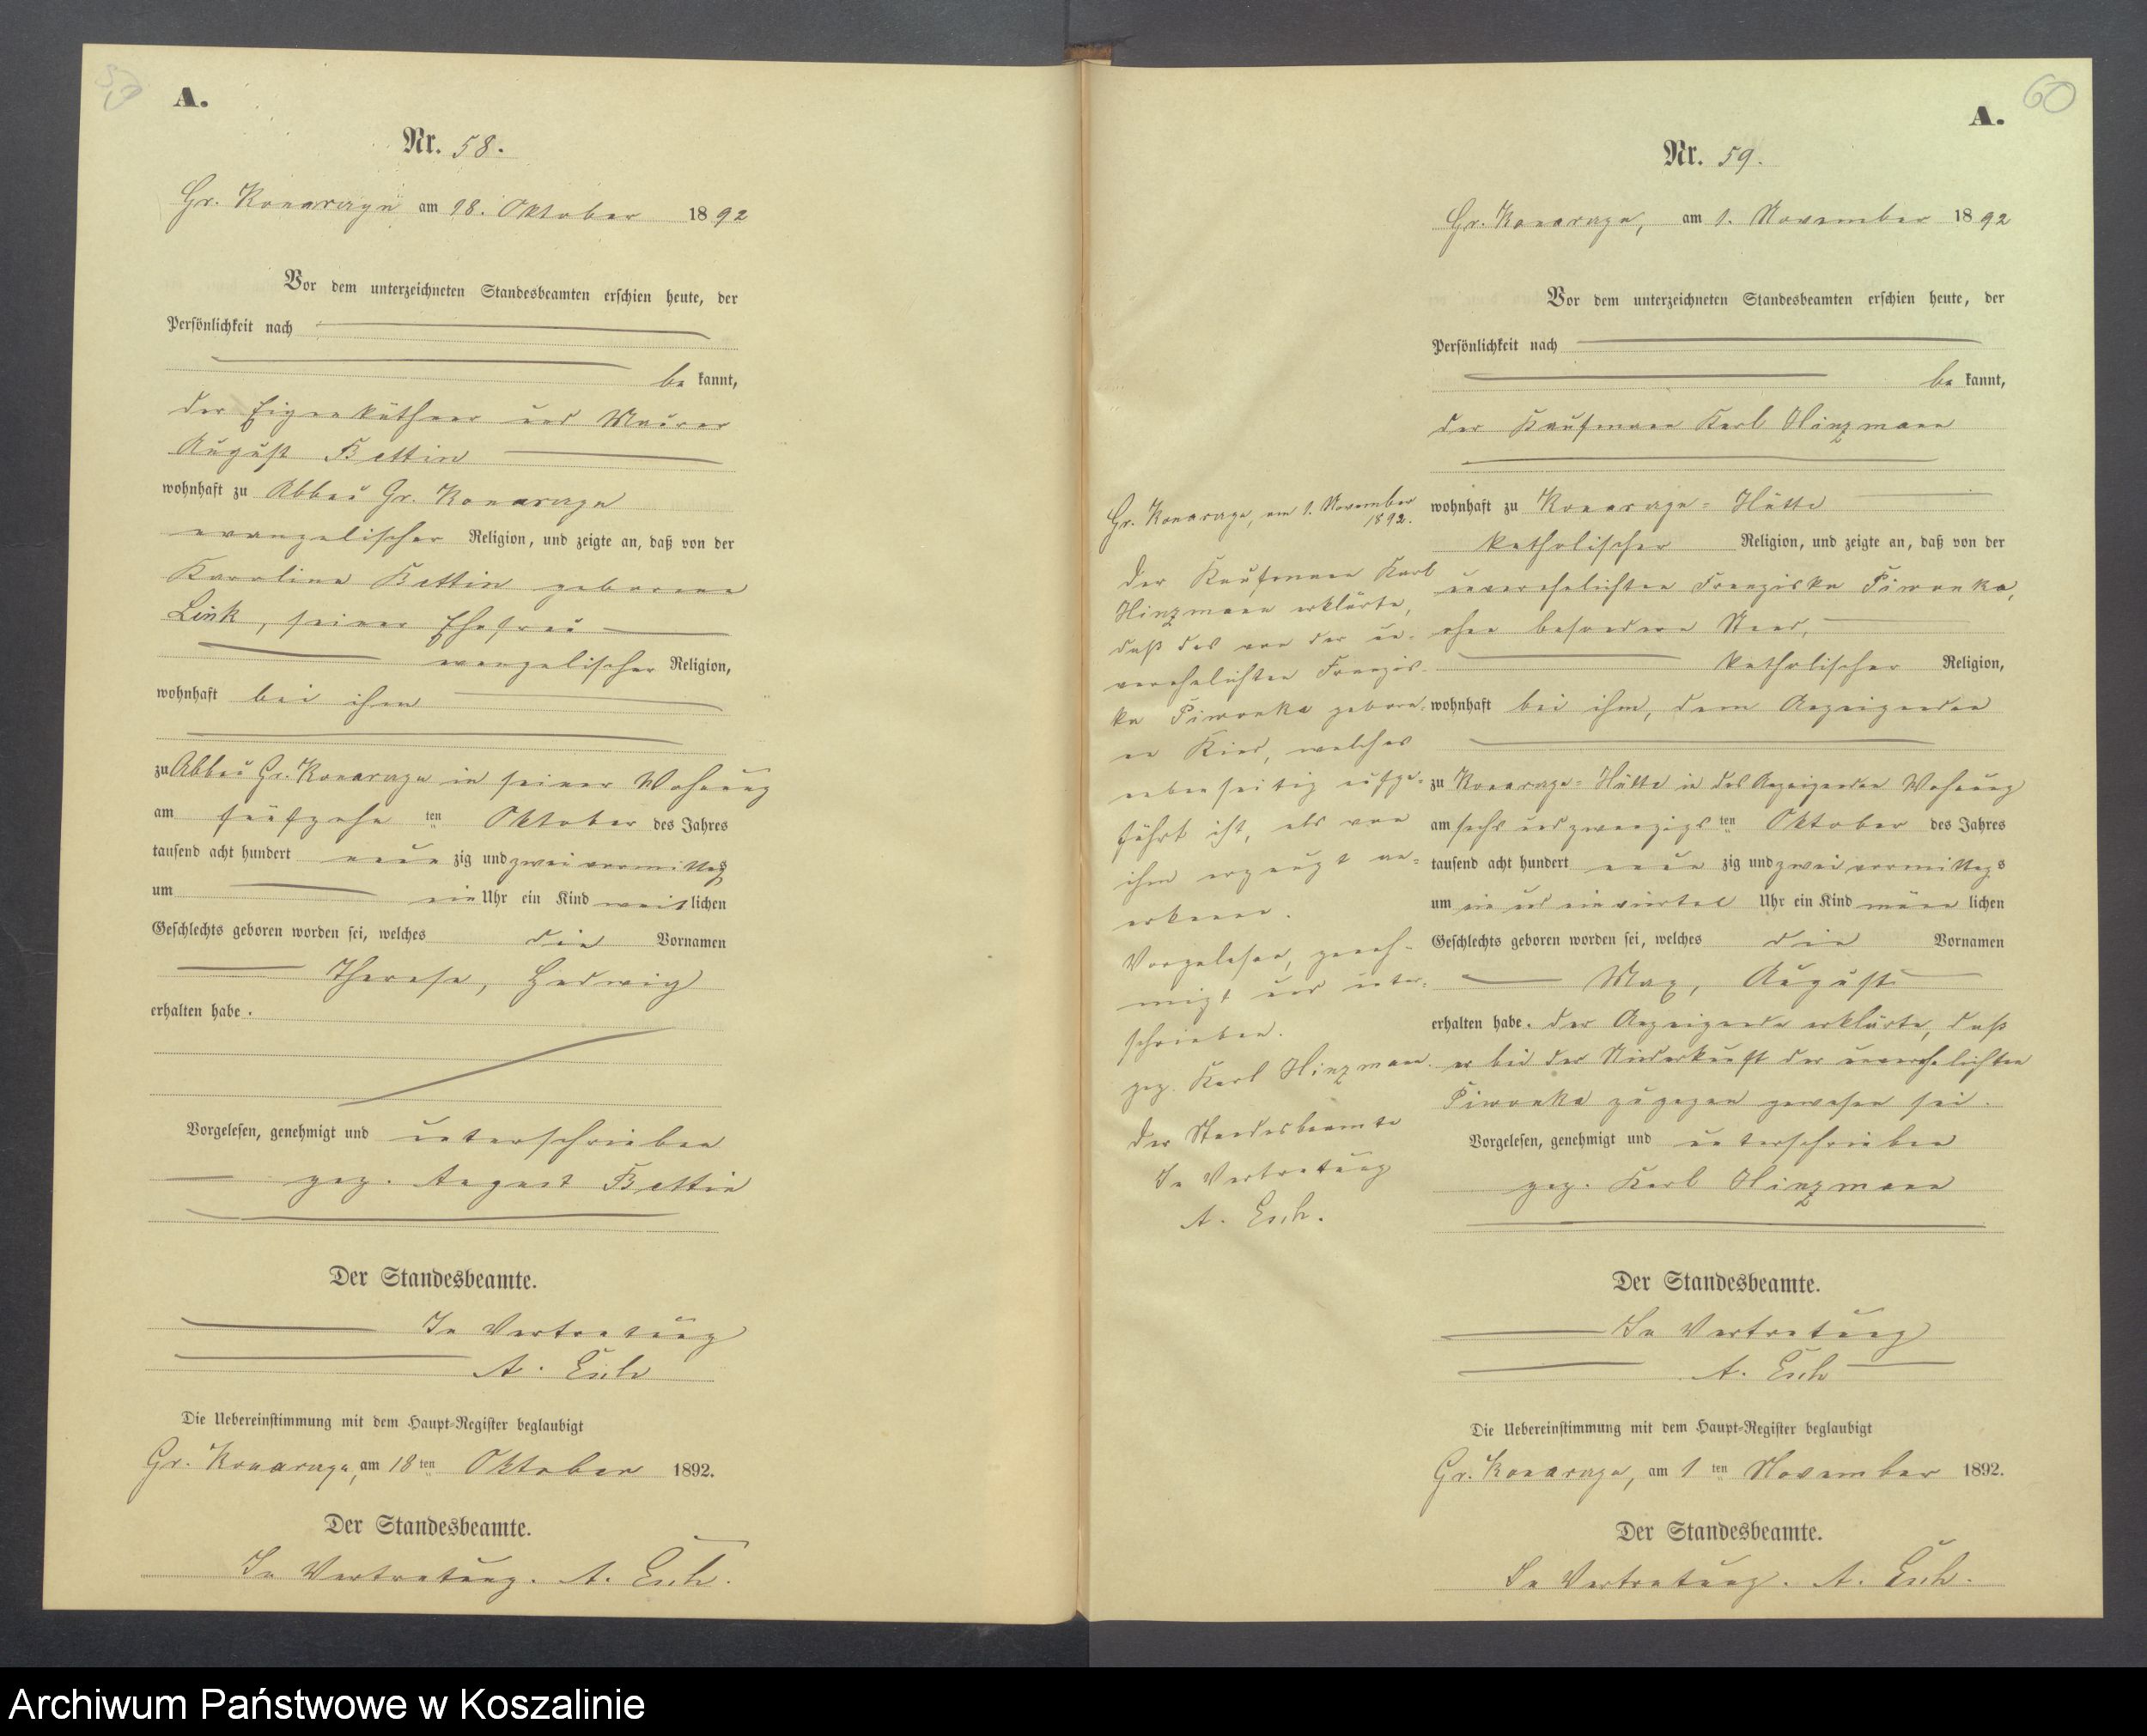 59
A.
Nr. 58.
Gr. Konarczyn am 18. Oktober 1892
Vor dem unterzeichneten Standesbeamten erschien heute, der
Persönlichkeit nach
be kannt,
der Eigenkäthner und Maurer
August Bettin
wohnhaft zu Abbau Gr. Konarczyn
evangelischer Religion, und zeigte an, daß von der
Karoline Bettin geborene
Link, seiner Ehefrau
evangelischer Religion,
wohnhaft bei ihm
zu Abbau Gr. Konarczyn in seiner Wohnung
am fünfzehn ten Oktober des Jahres
tausend acht hundert neun zig und zwei vormittags
um ein Uhr ein Kind weiblichen
Geschlechts geboren worden sei, welches die Vornamen
Therese, Hedwig
erhalten habe.
Vorgelesen, genehmigt und unterschrieben
gez. August Bettin
Der Standesbeamte.
In Vertretung
A.
Die Uebereinstimmung mit dem Haupt-Register beglaubigt
Gr. Konarczyn, am 18 ten Oktober 1892.
Der Standesbeamte.
In Vertretung. A.
60
A.
Nr. 59.
Gr. Konarczyn, am 1. November 1892
Vor dem unterzeichneten Standesbeamten erschien heute, der
Persönlichkeit nach
be kannt,
der Kaufmann Karl Hinzmann
wohnhaft zu Konarczyn-Hütte
katholischer Religion, und zeigte an, daß von der
unverehelichten Franziska Piwonka,
ohne besonderen Stand,
katholischer Religion,
wohnhaft bei ihm, dem Anzeigenden
zu Konarczyn-Hütte in des Anzeigenden Wohnung
am sechs und zwanzigs ten Oktober des Jahres
tausend acht hundert neun zig und zwei vormittags
um ein und einviertel Uhr ein Kind männ lichen
Geschlechts geboren worden sei, welches die Vornamen
Max, August
erhalten habe. Der Anzeigende erklärte, daß
er bei der Niederkunft der unverehelichten
Piwonka zugegen gewesen sei.
Vorgelesen, genehmigt und unterschrieben
gez. Karl Hinzmann
Der Standesbeamte.
In Vertretung
A.
Die Uebereinstimmung mit dem Haupt-Register beglaubigt
Gr. Konarczyn, am 1 ten November 1892.
Der Standesbeamte.
In Vertretung. A.
Gr. Konarczyn, am 1. November
1892.
Der Kaufmann Karl
Hinzmann erklärte,
daß das von der un-
verehelichten Franzis-
ka Piwonka gebore-
ne Kind, welches
nebenseitig aufge-
führt ist, als von
ihm erzeugt an-
erkenne.
Vorgelesen, geneh-
migt und unter-
schrieben.
gez. Karl Hinzmann.
Der Standesbeamte
In Vertretung
A.
Archiwum Państwowe w Koszalinie